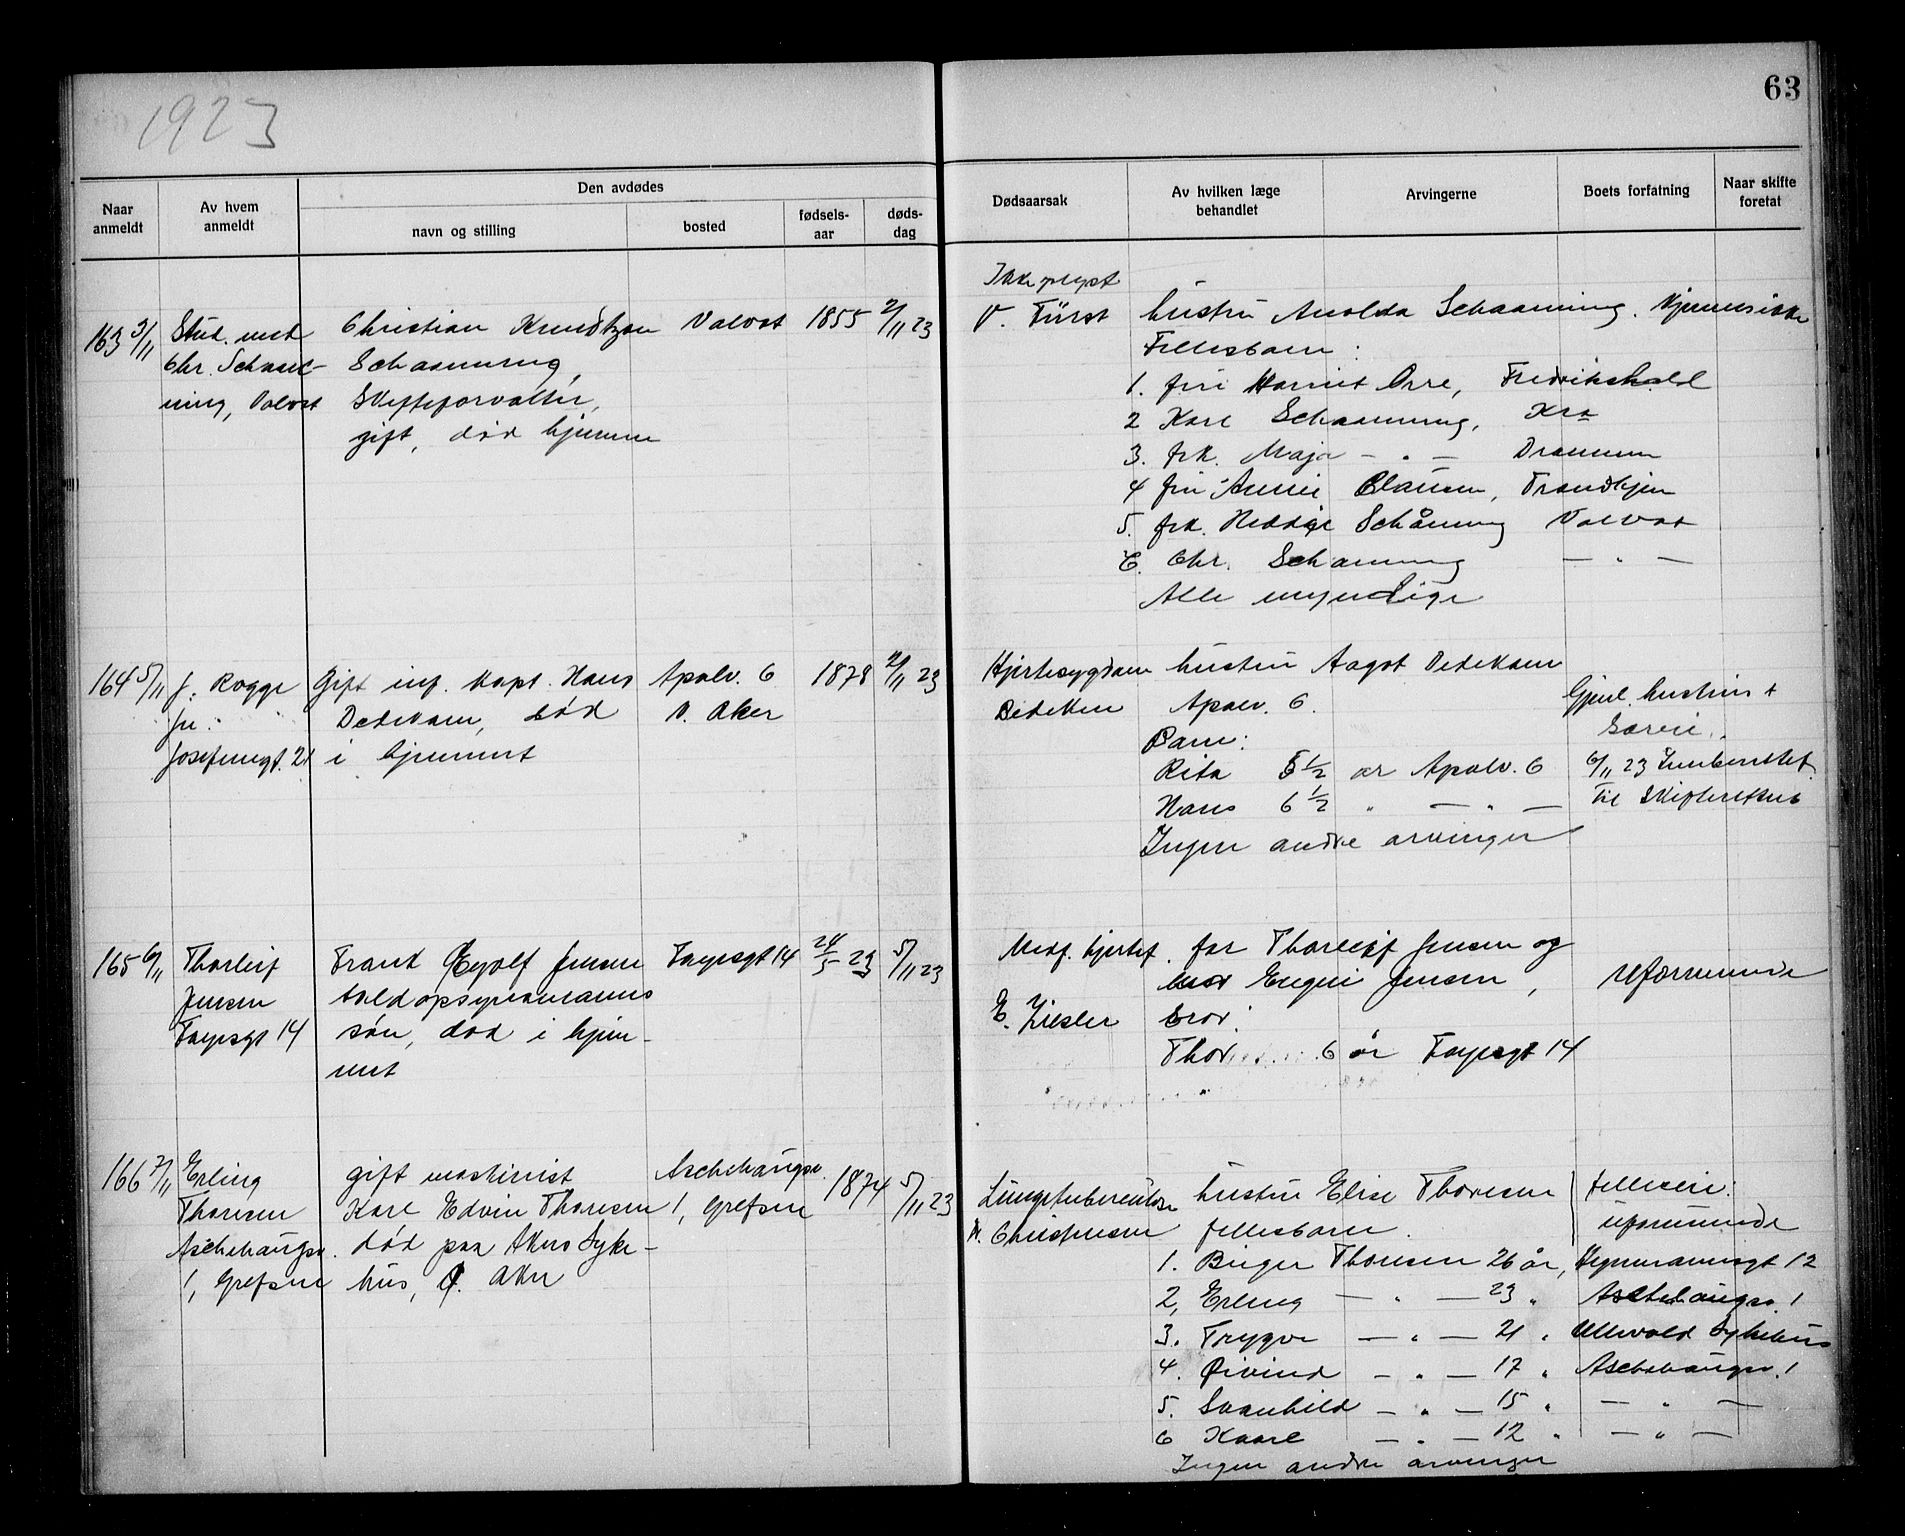 1923
63
Den avdødes
Naar anmeldt
Av hvem anmeldt
navn og stilling
bosted
fødsels-aar
døds-dag
Dødsaarsak
Av hvilken læge behandlet
Arvingerne
Boets forfatning
Naar skifte foretat
163 3/11 Stud. med Christian Knudtzon Valvat 1855 2/11 23
Chr. Schaan- Schaanning,
ning, Valvat Skifteforvalter,
gift, død hjemme
Ikke oplyst
V. Fürst hustru Schaanning. Hjemme
Fellesbarn:
1. fru Harriet Orre, Fredrikshald
2 Karl Schaanning, Kra
3. frk. Maja — " — Drammen
4 fru Annie Clausen, Trondhjem
5. frk. Hedvig Schåning Valvat
6. Chr. Schaning — " —
Alle myndige
164 5/11 J. Rogge Gift inf. kapt. Hans Apalv. 6 1878 2/11 23
jr. Dedekam, død V. Aker
Josefinegt. 21 i hjemmet
Hjertesygdom hustru Aagot Dedekam
Apalv. 6. Gjenl. hustrus
Barn: særeie
Rita 8 1/2 år Apalv. 6 6/11 23 Innberettet
Hans 6 1/2 " — " — til Skifteretten
Ingen andre arvinger
165 6/11 Thorleif Frank Eyolf Jensen Fayesgt 14 24/5 - 23 5/11 23
Jensen toldopsynsmanns
Fayesgt 14 søn, død i hjem-
met
Medf. hjertef. far Thorleif Jensen og
mor Eugeni Jensen, uformuende
E. Ziesler bror:
Thor 6 år Fayesgt 14
166 7/11 Erling gift maskinist Aschehougsv. 1874 5/11 23
Thoresen Karl Edvin Thoresen 1, Grefsen
Aschehougsv. død paa Akers Syke-
1, Grefsen hus, Ø. Aker
Lungetuberculose hustru Elise Thoresen felleseie:
N. Christensen fellesbarn. uformuende
1. Birger Thoresen 26 år, Hegermannsgt 12
2, Erling — " — 23 " Aschehougsv. 1
3. Trygve — " — 21 " Ullevold Sykehus
4. Øivind — " — 17 " Aschehougsv. 1
5. Svanhild — " — 15 " — " —
6 Kaare — " — 12 " — " —
Ingen andre arvinger